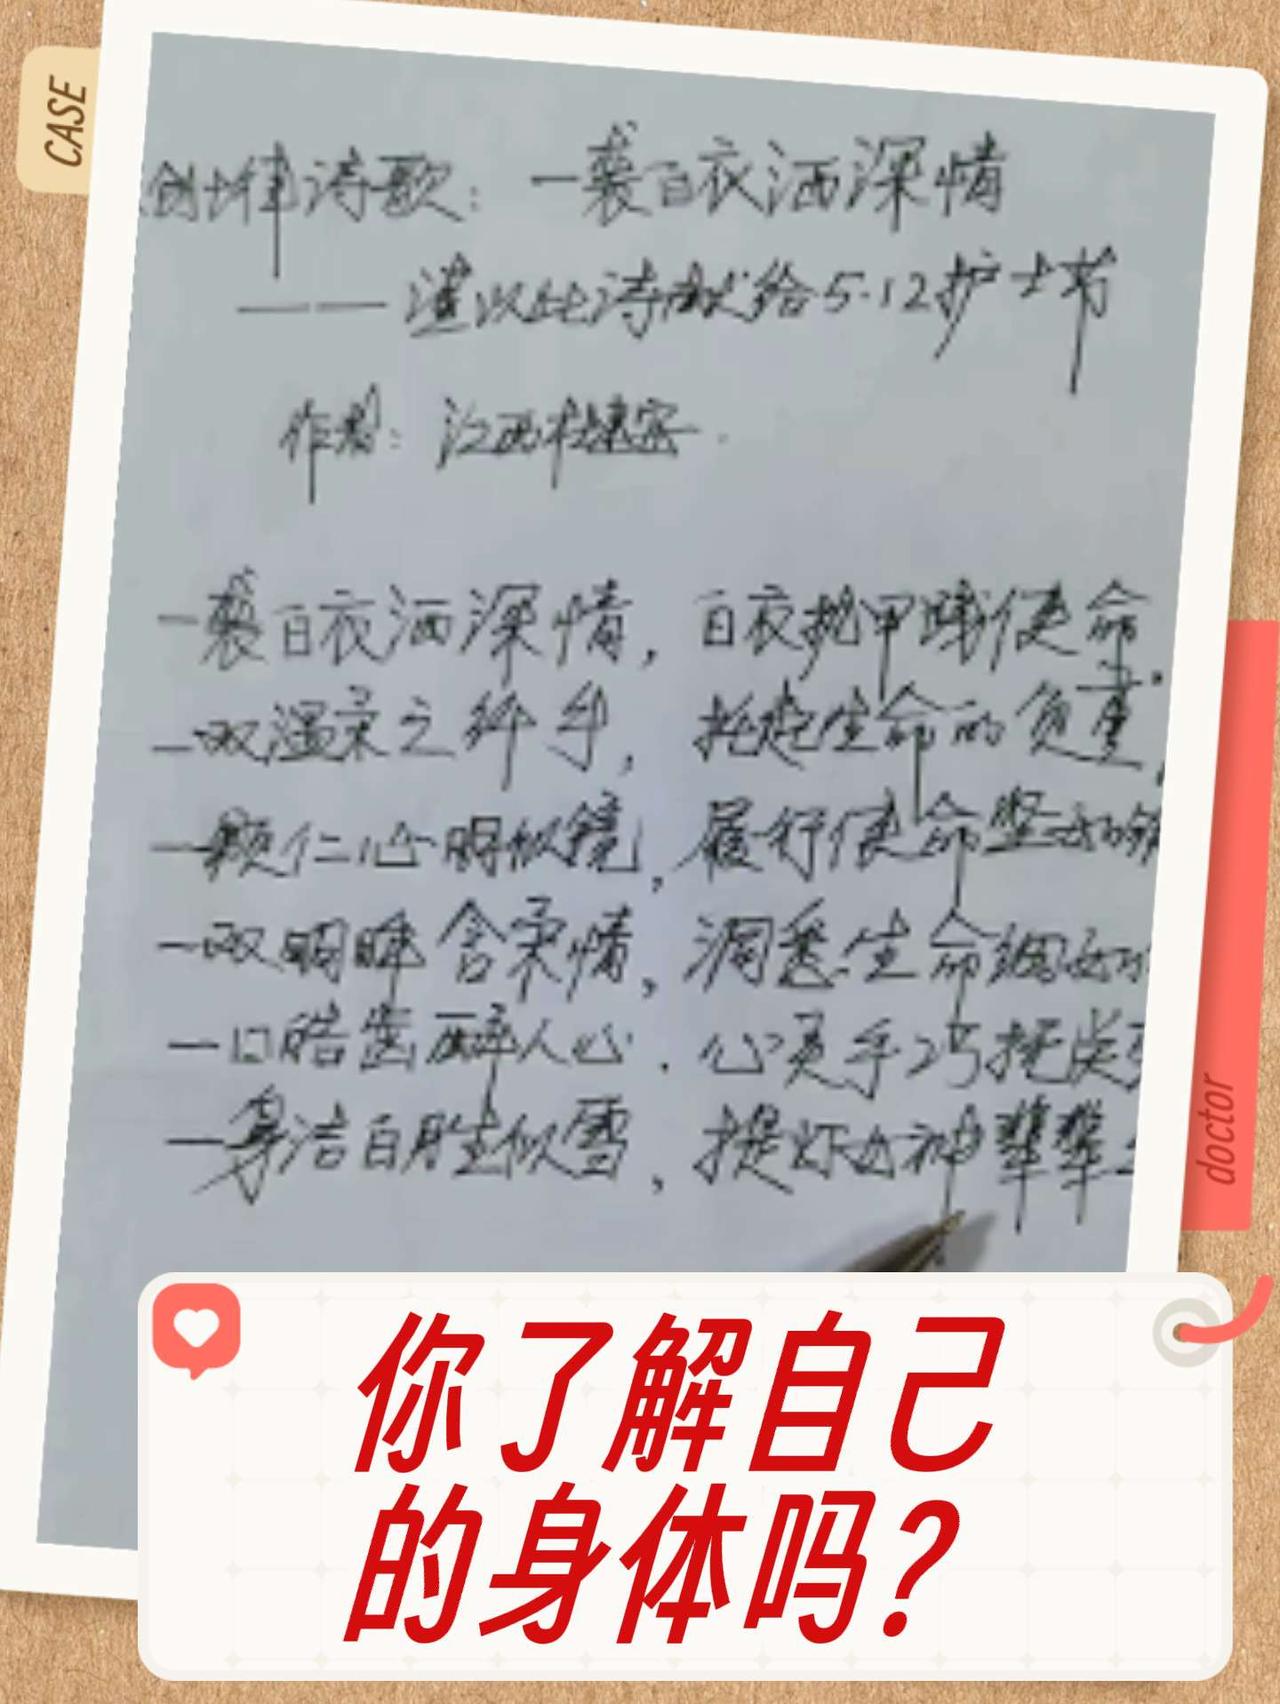 CASE
创七律诗歌：一袭白衣洒深情
——谨以此诗献给5.12护士节
作者：江西
一袭白衣洒深情，白衣披甲践使命；
一双温柔之纤手，托起生命的负重，
一颗仁心明似镜，履行使命坚
一双明眸含柔情，洞悉生命细
一口皓齿醉人心．心灵手巧托
一身洁白胜似雪，提灯女神辈辈
doctor
你了解自己
的身体吗？